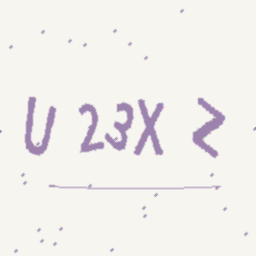 U 23X Z